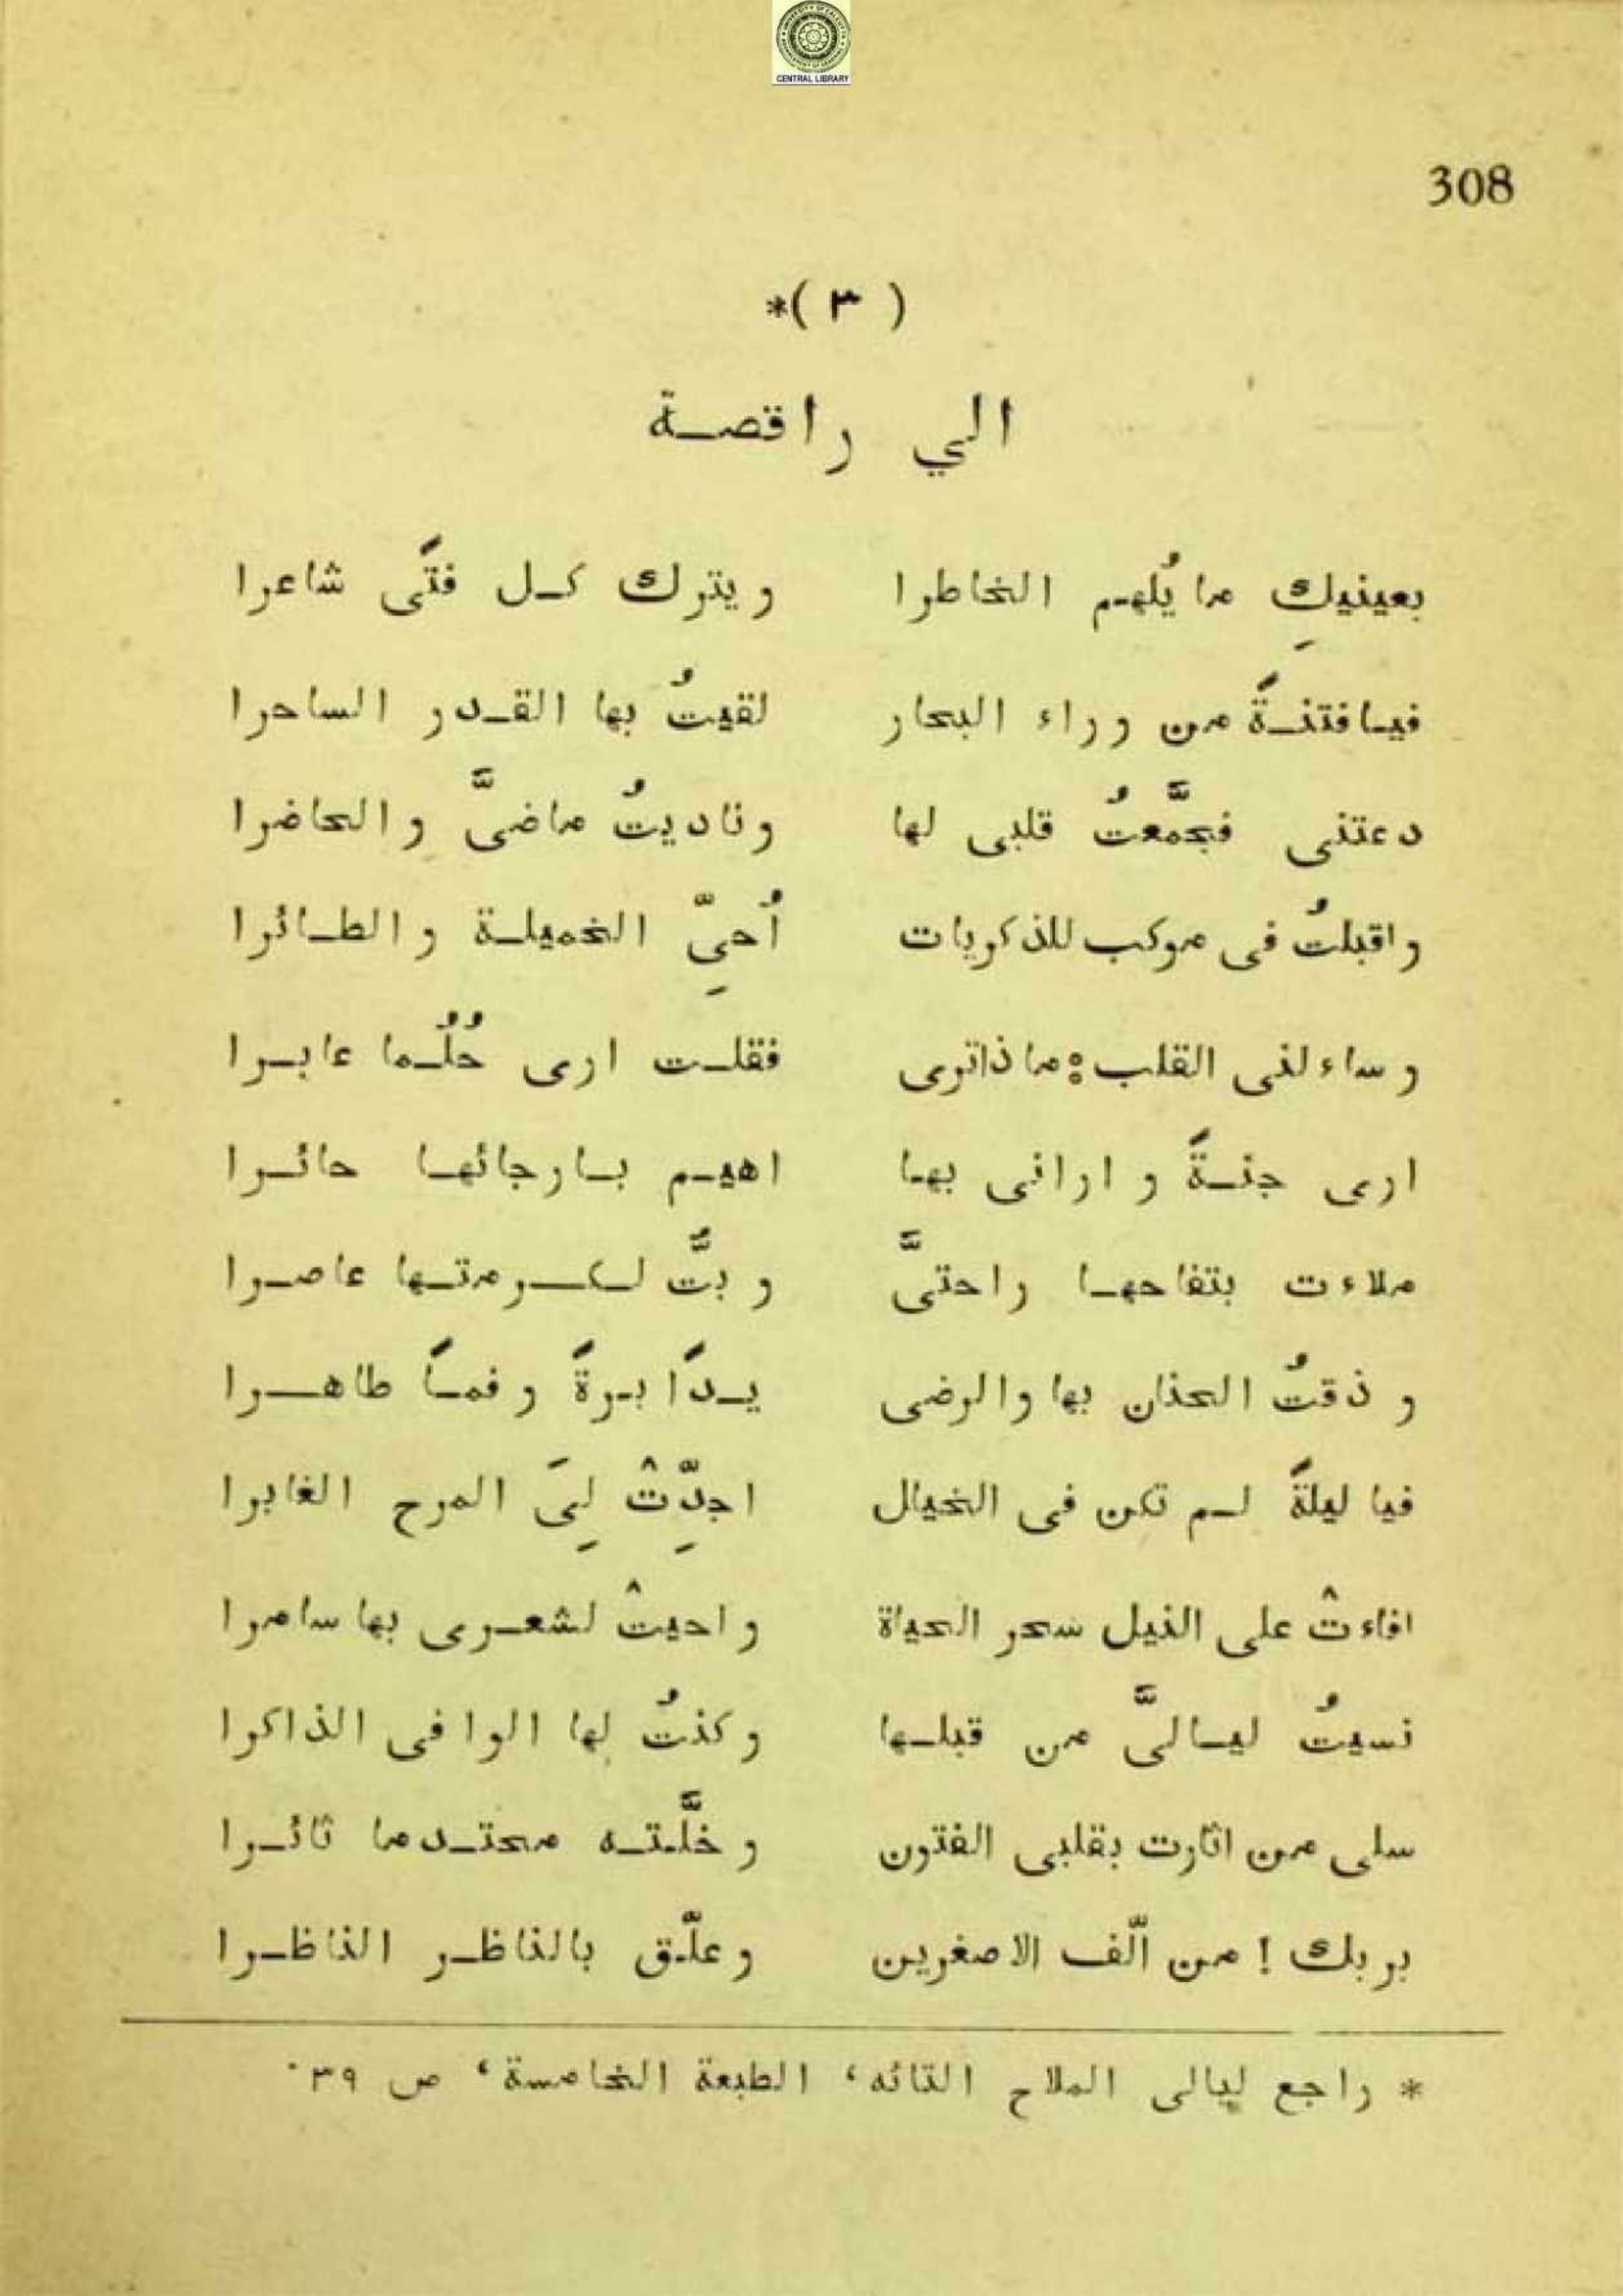 CENTRAL LIBRARY
308
( ٣ )*
الي راقصة
بعينيكِ ما يُلهم الخاطرا ويترك كل فتًى شاعرا
فيا فتنةً من وراء البحار لقيتُ بها القدر الساحرا
دعتنى فجمَّعتُ قلبى لها وناديتُ ماضىَّ والحاضرا
واقبلتُ فى موكب للذكريات أُحيِّ الخميلة والطائرا
وساءلنى القلب: ماذا ترى فقلت ارى حُلُما عابرا
ارى جنةً وارانى بها اهيم بارجائها حائرا
ملاءت بتفاحها راحتىَّ وبتُّ لكرمتها عاصرا
وذقتُ الحنان بها والرضى يدًا برةً وفمًا طاهرا
فيا ليلةً لم تكن فى الخيال اجدِّتْ لِىَ المرح الغابرا
افاءتْ على النيل سحر الحياة واحيتْ لشعرى بها سامرا
نسيتُ ليالىَّ من قبلها وكنتُ لها الوافى الذاكرا
سلى من اثارت بقلبى الفتون وخلَّته محتدما ثائرا
بربك ! من الّف الاصغرين وعلّق بالناظر الناظرا
* راجع ليالى الملاح التائه، الطبعة الخامسة، ص ٣٩.